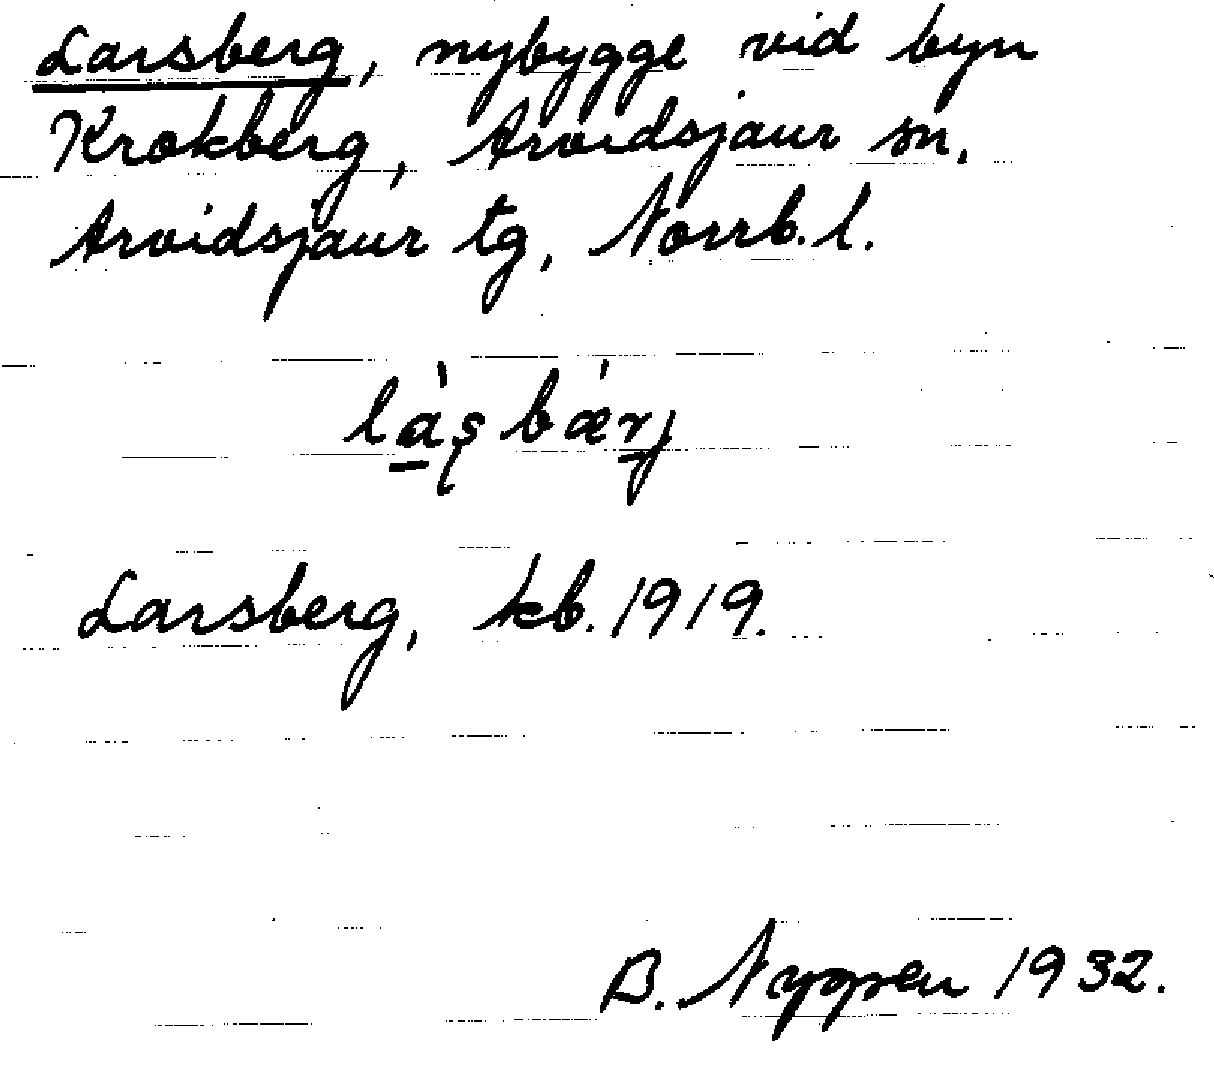 Larsberg, nybygge vid byn
Krokberg, Arvidsjaur sn,
Arvidsjaur tg, Norrb. l.
là̱ʂbǽṟj
Larsberg, kb. 1919.
B. Nygren 1932.